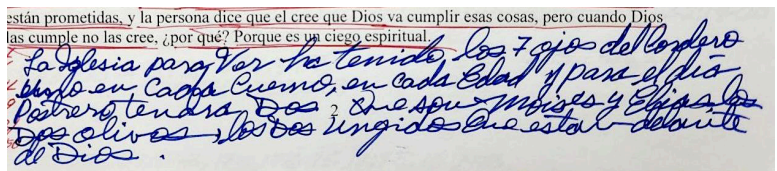 están prometidas, y la persona dice que el cree que Dios va cumplir esas cosas, pero cuando Dios
las cumple no las cree, ¿por qué? Porque es un ciego espiritual.
La Iglesia para Ver ha tenido los 7 ojos del Cordero
Uno en Cada Cuerno, en Cada Edad y para el día
Postrero, tendra Dos 2 Que son Moises y Elias los
Dos olivos, los Dos Ungidos Que estan delante
de Dios.